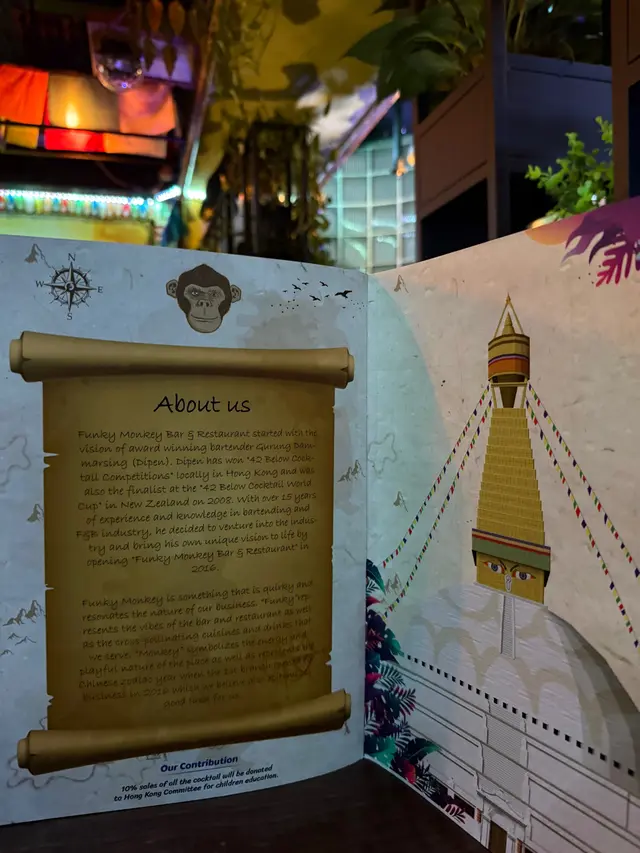 N
W E
S
About us
Funky Monkey Bar & Restaurant started with the
vision of award winning bartender Gurung Darn-
marsing (Dipen). Dipen has won "42 Below Cock-
tail Competitions" locally in Hong Kong and was
also the finalist at the "42 Below Cocktail World
Cup" in New Zealand on 2008. With over 15 years
of experience and knowledge in bartending and
F&B industry, he decided to venture into the indus-
try and bring his own unique vision to life by
opening "Funky Monkey Bar & Restaurant" in
2016.
Funky Monkey is something that is quirky and
resonates the nature of our business. "Funky" rep-
resents the vibes of the bar and restaurant as well
as the cross pollinating cuisines and drinks that
we serve. "Monkey" symbolizes the energy and
playful nature of the place as well as
Chinese zodiac year when the
business in 2016 which
good luck for us.
Our Contribution
10% sales of all the cocktail will be donated
to Hong Kong Committee for children education.